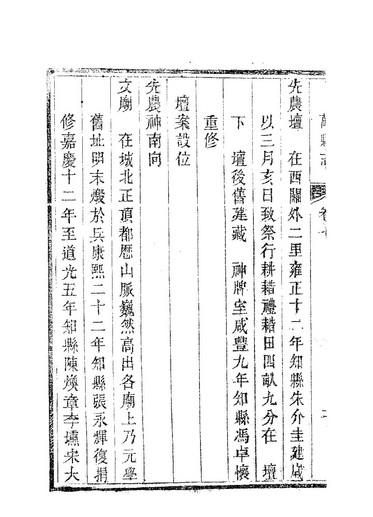 萬縣志
先農壇 在西關外二里雍正十二年知縣朱介圭建歲
以三月亥日致祭行耕耤禮耤田四畝九分在 壇
下 壇後舊建藏 神牌室咸豐九年知縣馮卓懷
重修
壇案設位
先農神南向
文廟 在城北正頂都歷山脈巍然高出各廟上乃元學
舊址明末燬於兵康熙二十二年知縣張永輝復捐
修嘉慶十二年至道光五年知縣陳煥章李壎宋大